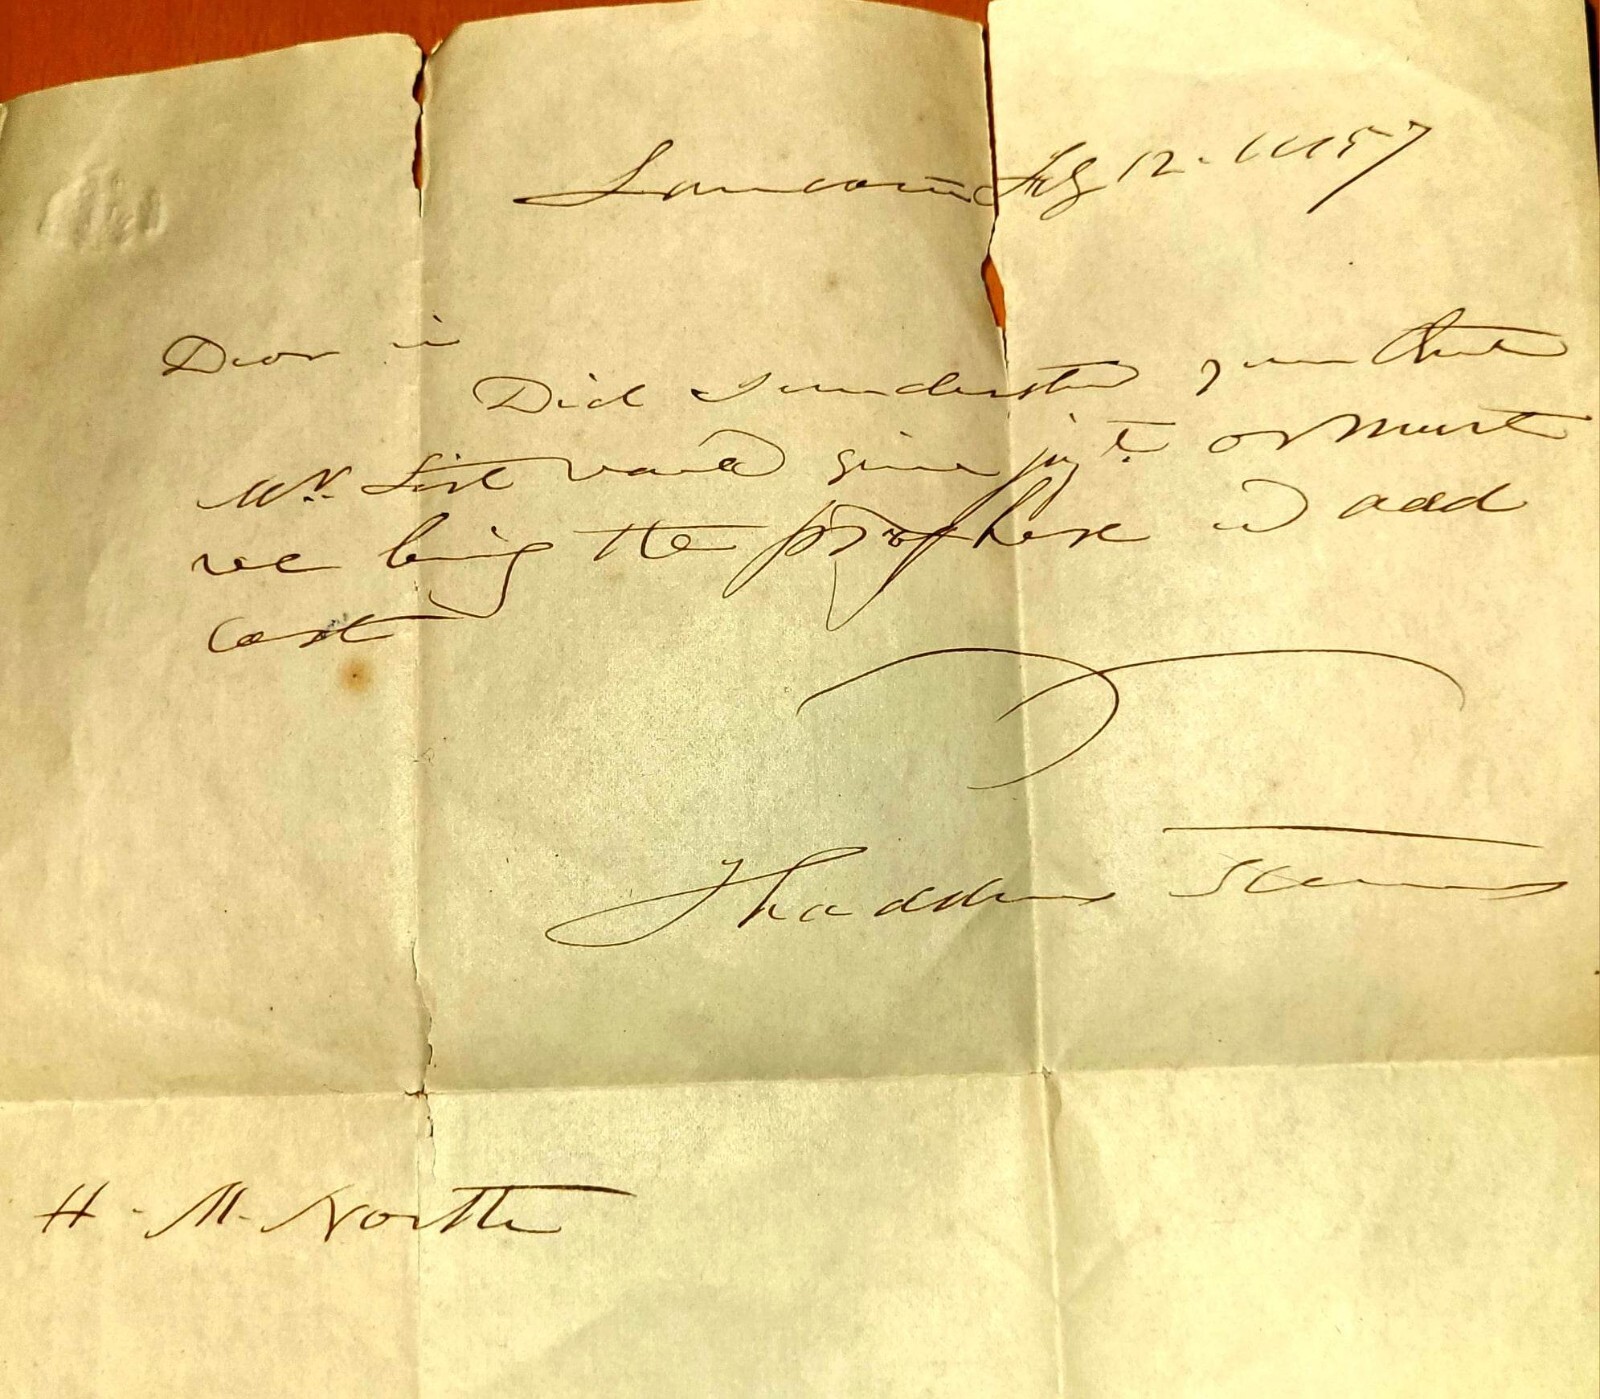 Lancaster Feby 12. 1857
Dear Sir
Did I understand you that
Mr. List would give jugt. or must
we bring the here &
cost
Thaddeus Stevens
H. M. North